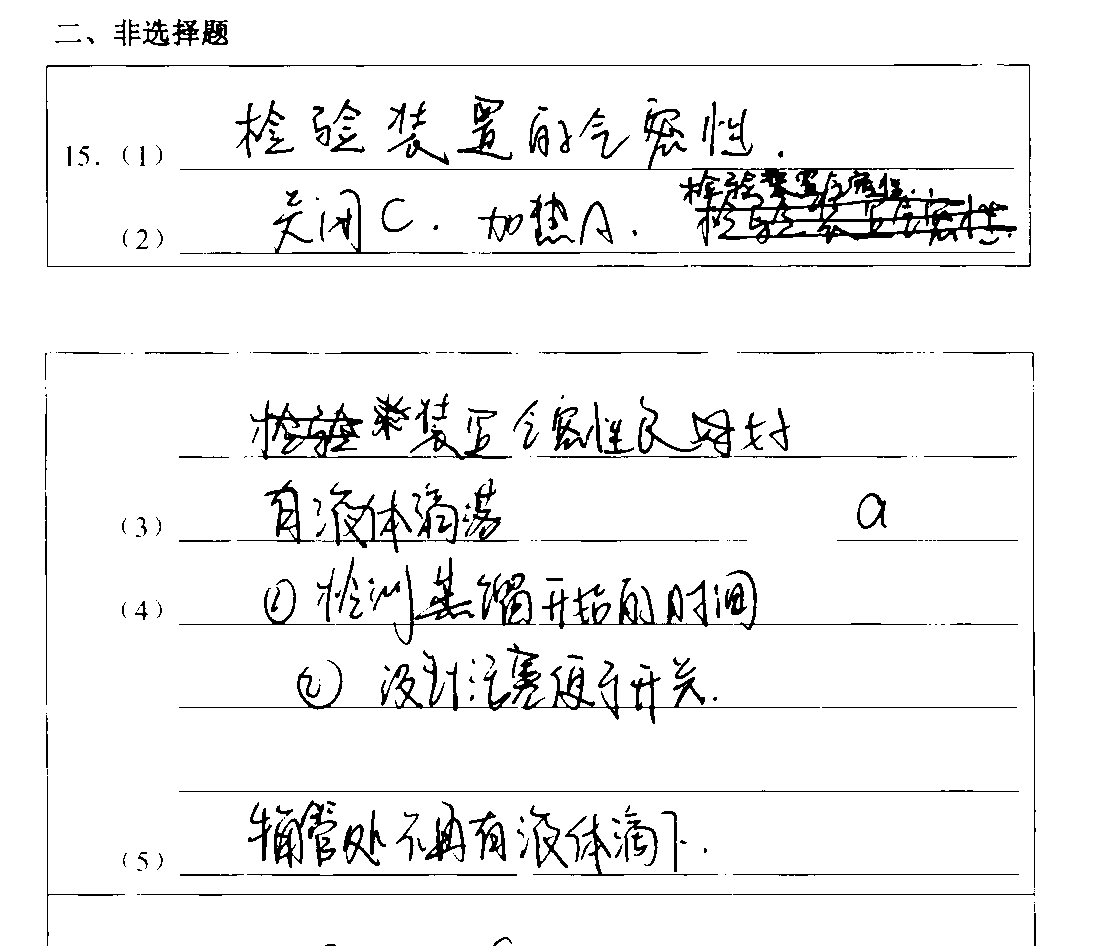 二、非选择题
15.（1） 检验装置的气密性.
（2） 关闭C. 加热A. 检验装置气密性.
检验装置气密性
检验 装置气密性良好
（3） 有液体滴落 a
（4） ①检测蒸馏开始的时间
② 设计活塞便于开关.
辅管处不再有液体滴下.
（5）